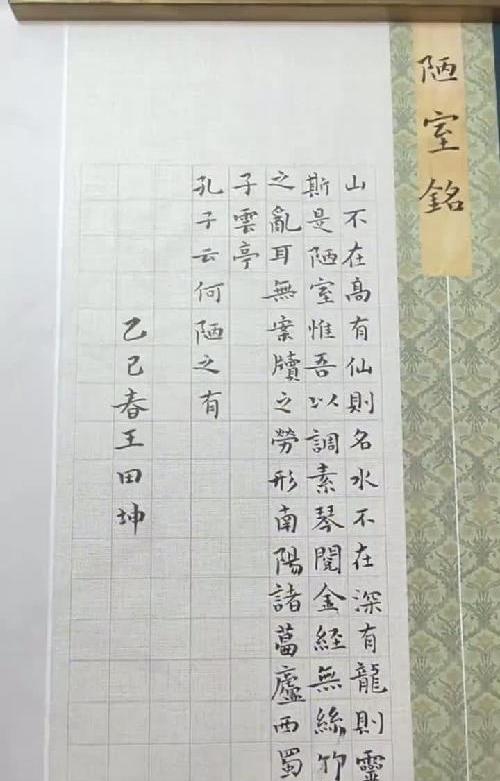 陋室銘
山不在高有仙則名水不在深有龍則靈
斯是陋室惟吾以調素琴閱金經無絲竹
之亂耳無案牘之勞形南陽諸葛廬西蜀
子雲亭
孔子云何陋之有
乙巳春王田坤